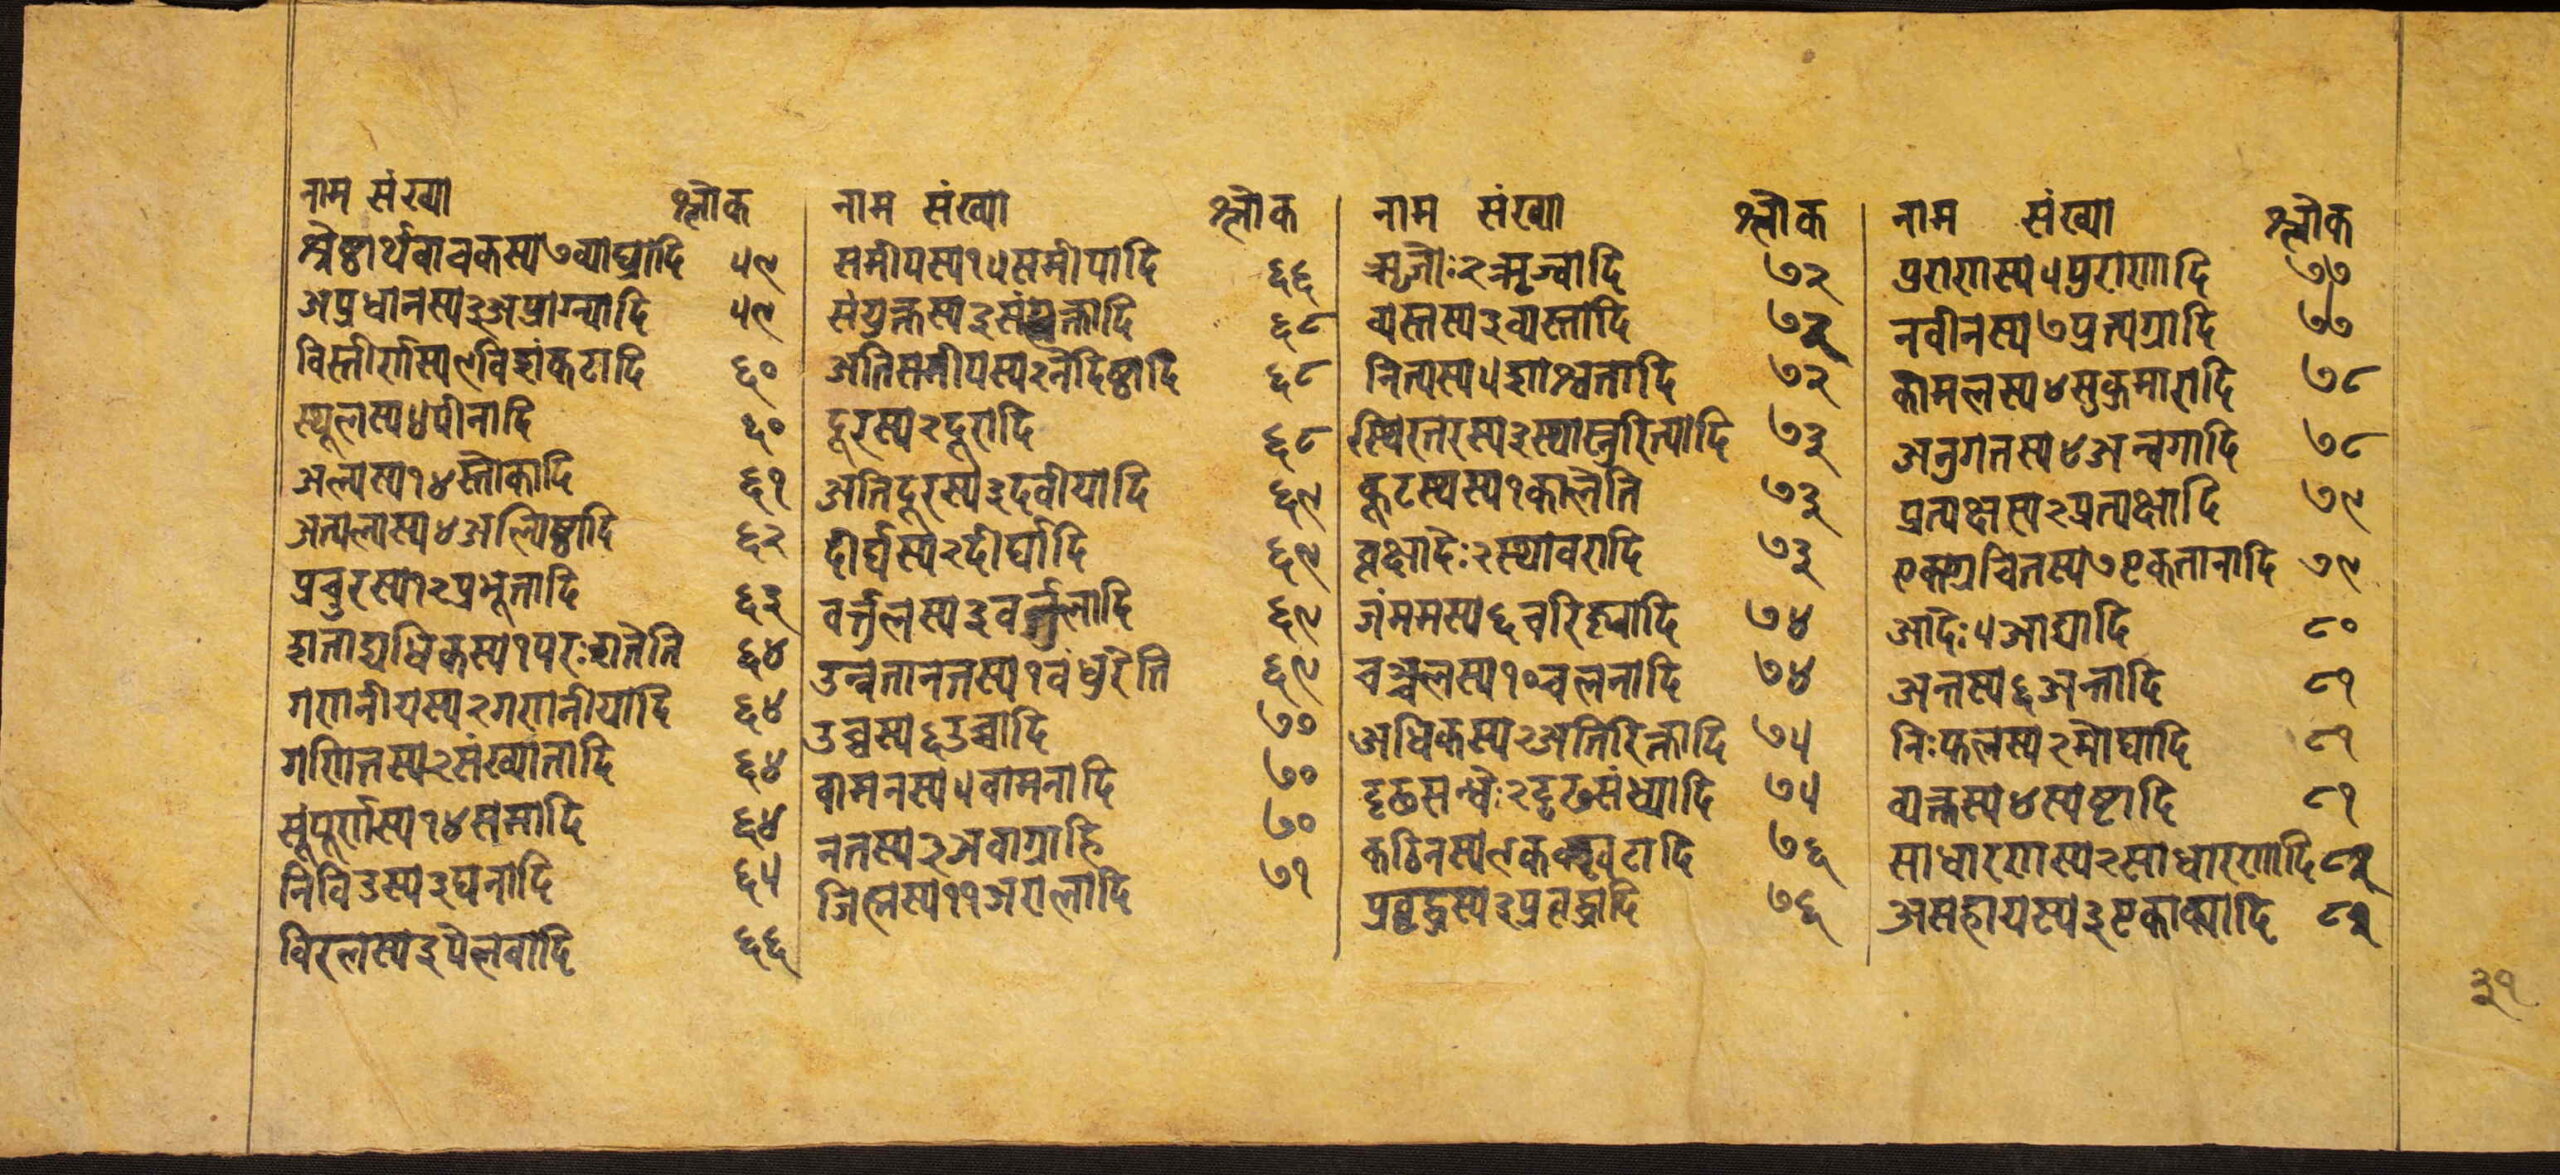 नाम संख्या श्लोक
श्रेष्ठार्थवाचकस्य७व्याघ्रादि ५९
अप्रधानस्य३अप्राग्न्यादि ५९
विस्तीर्णस्य९विशंकटादि ६०
स्थूलस्य४पीनादि ६०
अल्पस्य१४स्तोकादि ६१
अत्यल्पस्य४अल्पिष्ठादि ६२
प्रचुरस्य१२प्रभूतादि ६३
शताद्यधिकस्य१परःशतेति ६४
गणनीयस्य२गणनीयादि ६४
गणितस्य२संख्यातादि ६४
संपूर्णस्य१४समादि ६४
निविडस्य३घनादि ६५
विरलस्य३पेलवादि ६६
नाम संख्या श्लोक
समीपस्य१५समीपादि ६६
संयुक्तस्य३संयुक्तादि ६८
अतिसमीपस्य२नेदिष्ठादि ६८
दूरस्य२दूरादि ६८
अतिदूरस्य३दवीयादि ६९
दीर्घस्य२दीर्घादि ६९
वर्त्तुलस्य३वर्त्तुलादि ६९
उन्नतानतस्य१वंधुरेति ६९
उच्चस्य६उच्चादि ७०
वामनस्य५वामनादि ७०
नतस्य२अवाग्रादि ७०
जिह्मस्य११अरालादि ७१
नाम संख्या श्लोक
ऋजोः२ऋज्वादि ७२
व्यस्तस्य३व्यस्तादि ७२
नित्यस्य५शाश्वतादि ७२
स्थिरतरस्य३स्थास्नुरित्यादि ७३
कूटस्थस्य१कालेति ७३
वृक्षादेः२स्थावरादि ७३
जंममस्य६चरिष्ण्वादि ७४
चञ्चलस्य१०चलनादि ७४
अधिकस्य२अतिरिक्तादि ७५
दृढसन्धेः२दृढसंध्यादि ७५
कठिनस्य९कक्खटादि ७६
प्रवृद्धस्य३प्रवृद्धादि ७६
नाम संख्या श्लोक
पुराणस्य५पुराणादि ७७
नवीनस्य७प्रत्यग्रादि ७७
कोमलस्य४सुकुमारादि ७८
अनुगतस्य४अन्वगादि ७८
प्रत्यक्षस्य२प्रत्यक्षादि ७९
एकाग्रचितस्य७एकतानादि ७९
आदेः५आद्यादि ८०
अन्तस्य६अन्तादि ८१
निःफलस्य२मोघादि ८१
व्यक्तस्य४स्पष्टादि ८१
साधारणस्य२साधारणादि ८२
असहायस्य३एकाक्यादि ८२
३१